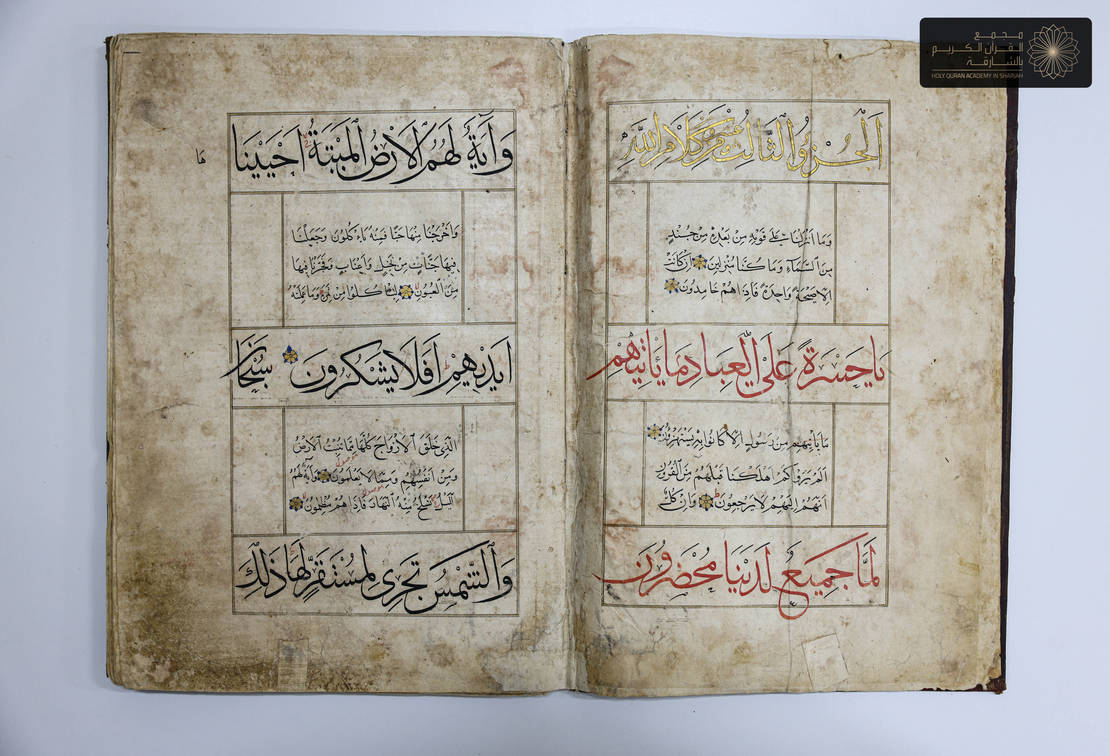 مجمع
القرآن الكريم
بالشارقة
HOLY QURAN ACADEMY IN SHARJAH
الجزؤ الثالث من كلام الله
وَمَا انزلنا على قومِه مِن بعدِه مِن جندٍ
مِن السَّمَآءِ وَمَا كنَّا مُنزلين ان كانت
الا صيحةً وَاحِدةً فَاِذَا هُم خَامِدُونَ
يَا حَسْرَةً عَلَى العِبَادِ مَا يَاتِيهِمْ
مَا يَاتِيهِم مِن رَسُولٍ اِلا كَانُوا بِه يَستهزؤُن
الم يَروا كم اهلكنا قَبلَهُم مِنَ القُرونِ
انّهُم اِليهِم لا يَرجعُون وَاِن كلٌّ
لَمَّا جَمِيعٌ لَدَيْنَا مُحْضَرُونَ
وَآيَةٌ لَهُمُ الاَرْضُ المَيْتَةُ اَحْيَيْنَا
هَا
وَاَخرجنَا مِنهَا حبّا فَمِنهُ يَاءكلُونَ وَجَعَلنَا
فِيهَا جنَّاتٍ مِن نَخيلٍ وَاَعنَابٍ وَفَجَّرنَا فِيهَا
مِنَ العُيُونِ لِيَاكلُوا مِن ثَمَرِه وَمَا عَمِلَتهُ
اَيْدِيهِمْ اَفَلَا يَشْكُرُونَ سُبْحَانَ
الَّذي خَلَقَ الاَزوَاجَ كلَّهَا مِمَّا تُنبِتُ الاَرضُ
وَمِن اَنفُسِهِم وَمِمَّا لا يَعلَمُونَ وَآيَةٌ لَهُمُ
اليلُ نَسلَخُ مِنهُ النَّهَارَ فَاِذَا هُم مُظلِمُونَ
وَالشَّمْسُ تَجْرِى لِمُسْتَقَرٍّ لَهَا ذَلِكَ